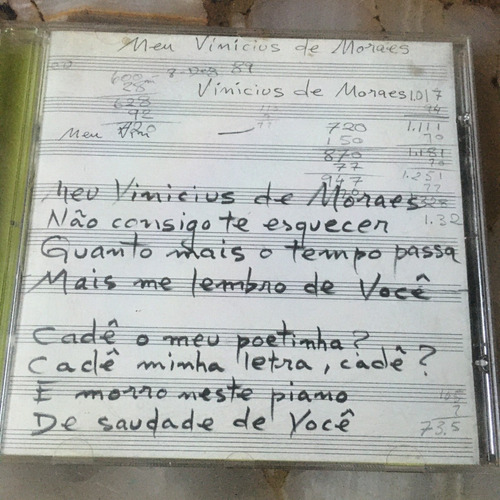 Meu Vinicius de Moraes
8-Dez 89
600
28
628
92
720
Vinicius de Moraes
1.017
94
1.111
70
1.181
70
1.251
77
1.328
1.32
Meu Vini
720
150
870
77
947
Meu Vinicius de Moraes
Não consigo te esquecer
Quanto mais o tempo passa
Mais me lembro de Você
Cadê o meu poetinha?
Cadê minha letra, cadê?
E morro neste piano
De saudade de Você
105
7
73.5